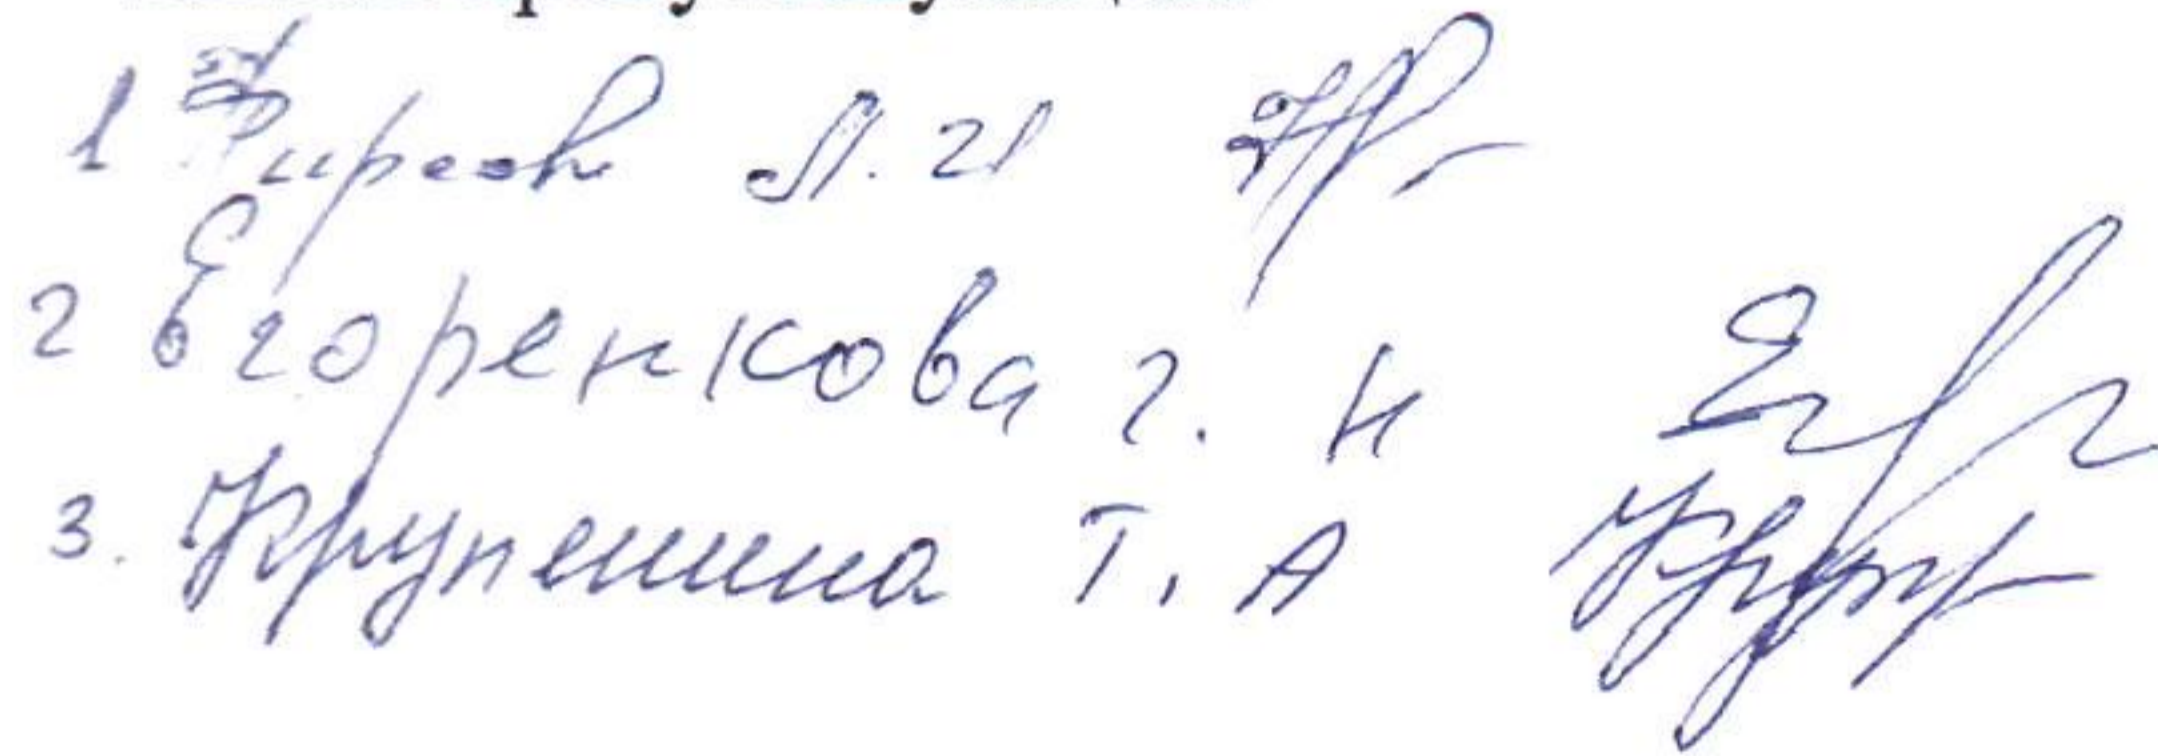 1 Фирсов Л. И
2 Егоренкова Г. Н
3. Крупенина Т. А